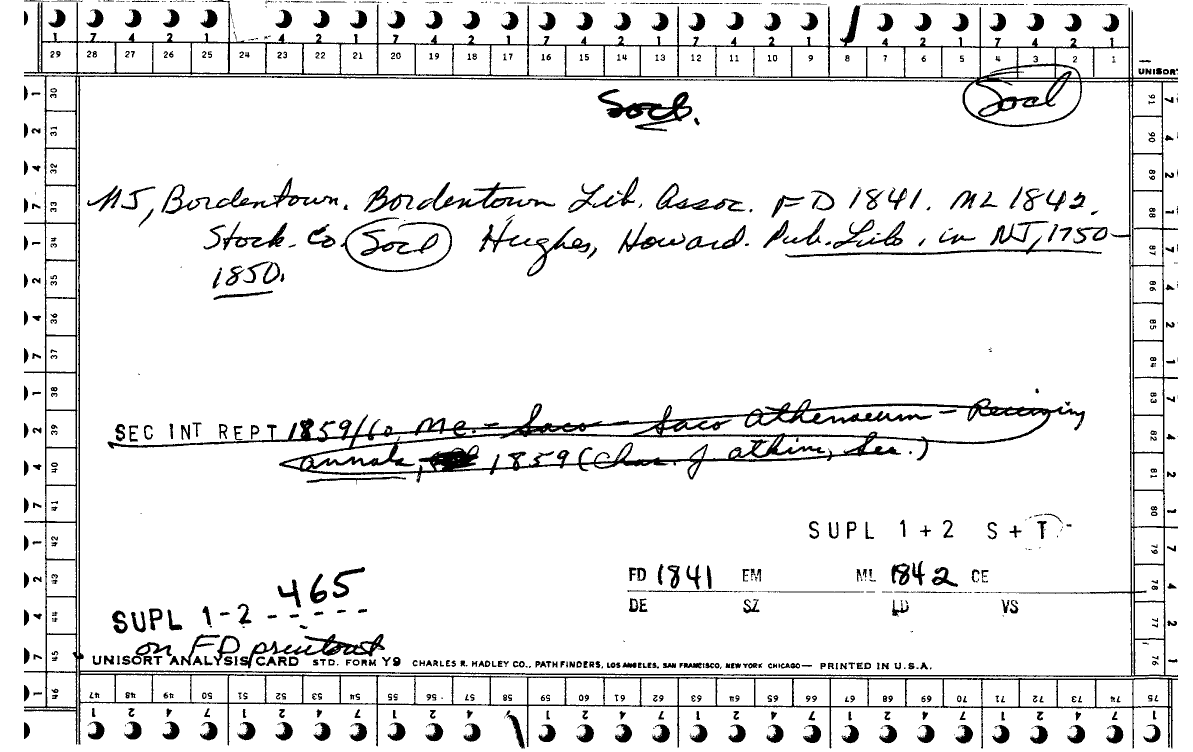 7 4 2 1 7 4 2 1 7 4 2 1 7 4 2 1 7 4 2 1 7 4 2 1
29 28 27 26 25 24 23 22 21 20 19 18 17 16 15 14 13 12 11 10 9 8 7 6 5 4 3 2 1
UNISORT
Socl.
Socl
NJ, Bordentown. Bordentown Lib. Assoc. FD 1841. ML 1842.
Stock. Co. Socl Hughes, Howard. Pub. Libs. in NJ, 1750-
1850.
SEC INT REPT 1859/60, Me. - Saco - Saco Athenaeum - Receiving
annals, 1859 (Chas. J. Atkin, Sec.)
SUPL 1+2 S+T-
FD 1841 EM ML 1842 CE
DE SZ LD VS
465
SUPL 1-2 - - - - -
on FD printout
UNISORT ANALYSIS CARD STD. FORM Y9 CHARLES R. HADLEY CO., PATHFINDERS, LOS ANGELES, SAN FRANCISCO, NEW YORK CHICAGO— PRINTED IN U.S.A.
47 48 49 50 51 52 53 54 55 56 57 58 59 60 61 62 63 64 65 66 67 68 69 70 71 72 73 74 75